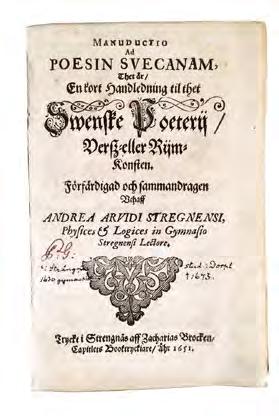 MANUDUCTIO
Ad
POESIN SVECANAM,
Thet är/
En kort Handledning til thet
Swenske Poeterij/
Verß- eller Rijm-
Konsten.
Författadigad och sammandragen
Aff
ANDREA ARVIDI STREGNENSI,
Physices & Logices in Gymnasio
Stregnensi Lectore.
stud: Dorpt
† 1673.
Tryckt i Strengnäs aff Zacharias Brocken/
Capitlets Booktryckiare/ Åhr 1651.